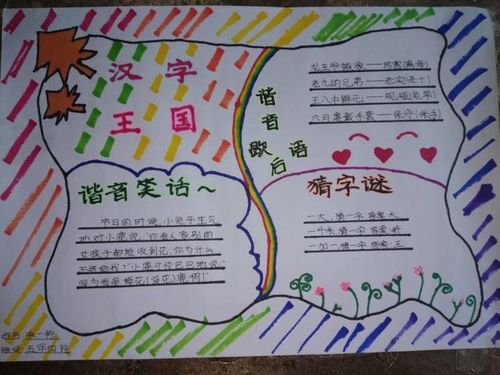 汉字
王国
谐音
歇后语
龙王爷搬家——
老九的兄弟——老实(老十)
王八中解元——规矩(龟举)
六月里戴手套——保守(保手)
谐音笑话~
节日的时候,小兔子生气
地对小鹿说:“你看人家别的
女孩子都能收到花,你为什么
不送给我?”小鹿可怜巴巴地说:
因为我是梅花(没花)鹿啊!”
猜字谜
一大,猜一字 答案:天
一个米 猜一字 答案:
一加一,猜一字 答案:王
姓名:
班级:五年四班